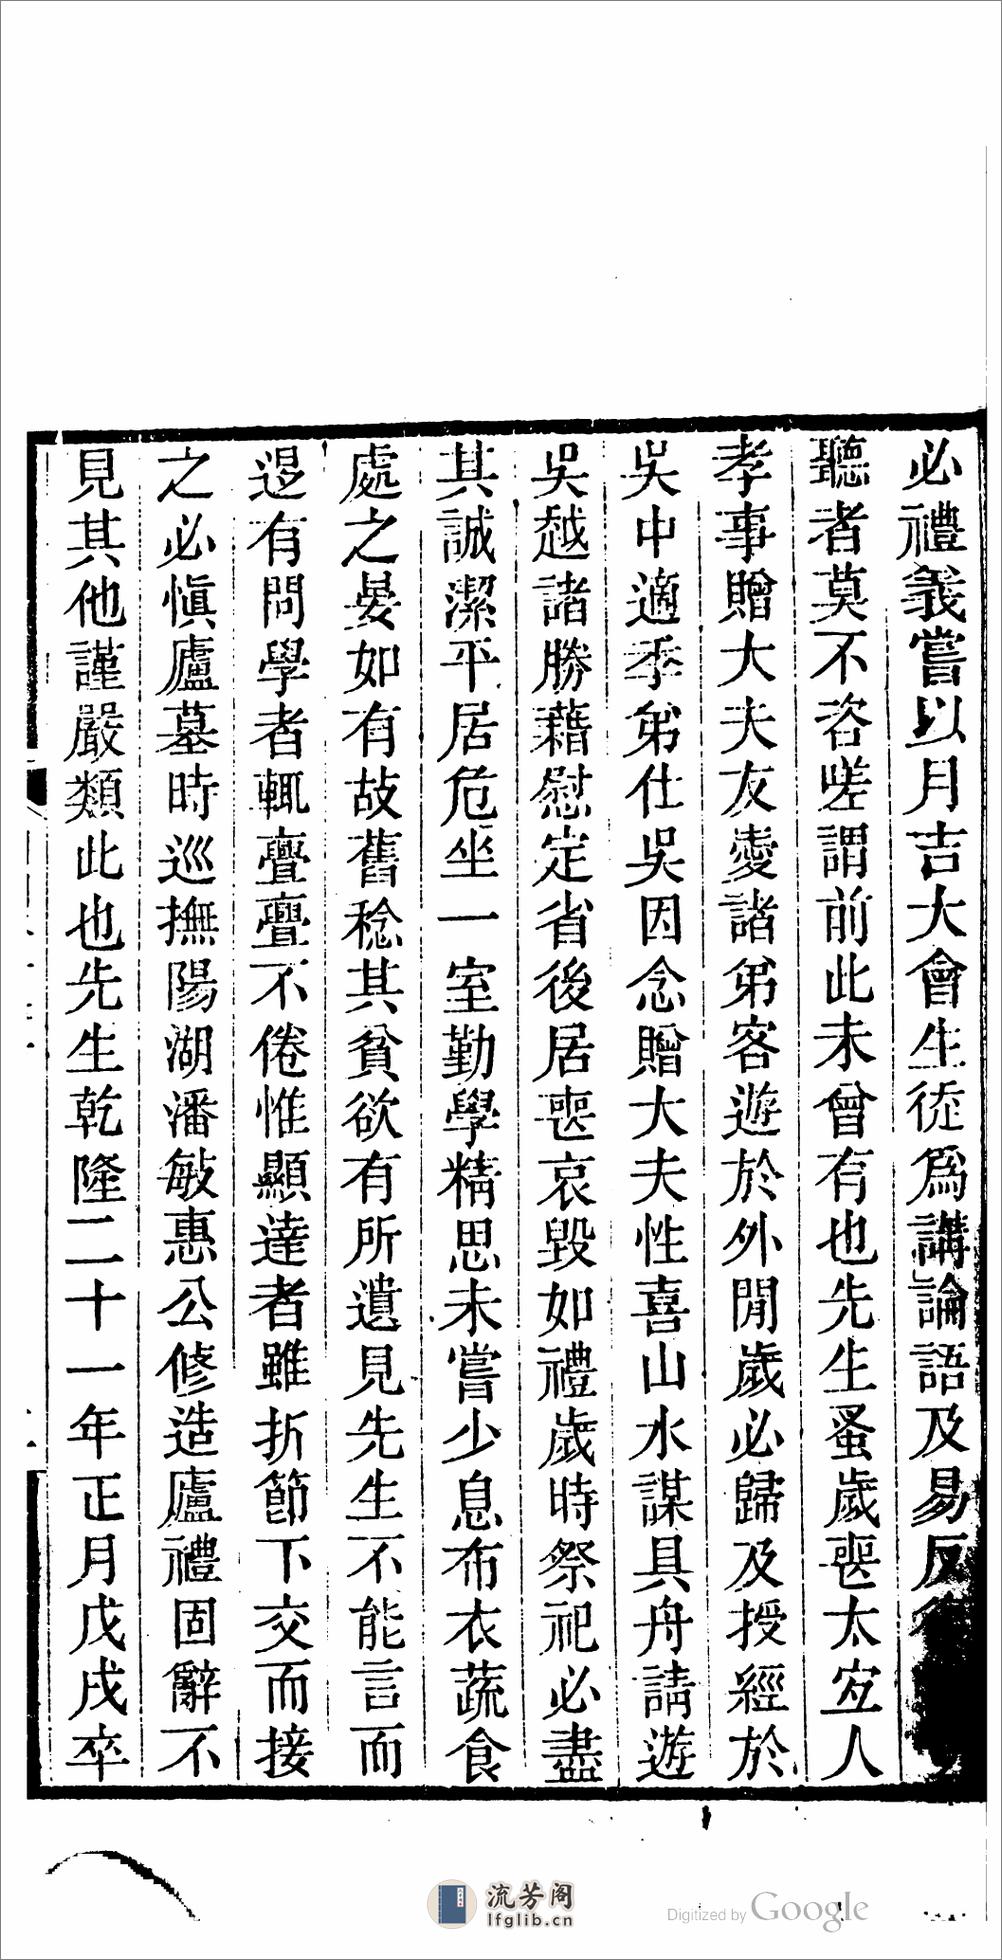 必禮義嘗以月吉大會生徒爲講論語及易反
聽者莫不咨嗟謂前此未曾有也先生蚤歲喪太宜人
孝事贈大夫友愛諸弟客遊於外閒歲必歸及授經於
吳中適季弟仕吳因念贈大夫性喜山水謀具舟請遊
吳越諸勝藉慰定省後居喪哀毀如禮歲時祭祀必盡
其誠潔平居危坐一室勤學精思未嘗少息布衣蔬食
處之晏如有故舊稔其貧欲有所遺見先生不能言而
退有問學者輒亹亹不倦惟顯達者雖折節下交而接
之必愼廬墓時巡撫陽湖潘敏惠公修造廬禮固辭不
見其他謹嚴類此也先生乾隆二十一年正月戊戌卒
流芳阁
lfglib.cn
Digitized by Google